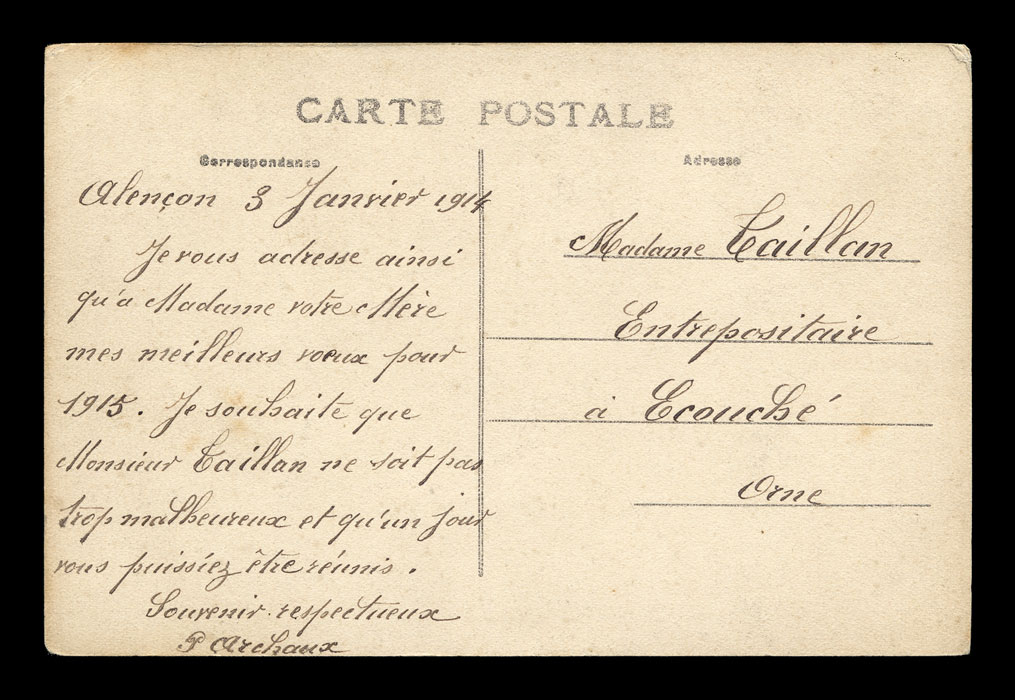 CARTE POSTALE
Correspondance
Alençon 3 Janvier 1914
Je vous adresse ainsi
qu'a Madame votre Mère
mes meilleurs vœux pour
1915. Je souhaite que
Monsieur Taillan ne soit pas
trop malheureux et qu'un jour
vous puissiez être réunis.
Souvenir respectueux
P Archaux
Adresse
Madame Taillan
Entrepositaire
à Ecouché
Orne